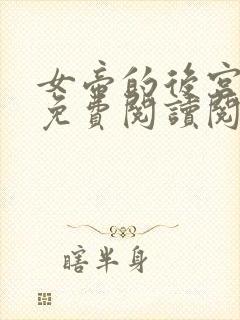 女帝的後宮
免費閱讀閱
瞎半身